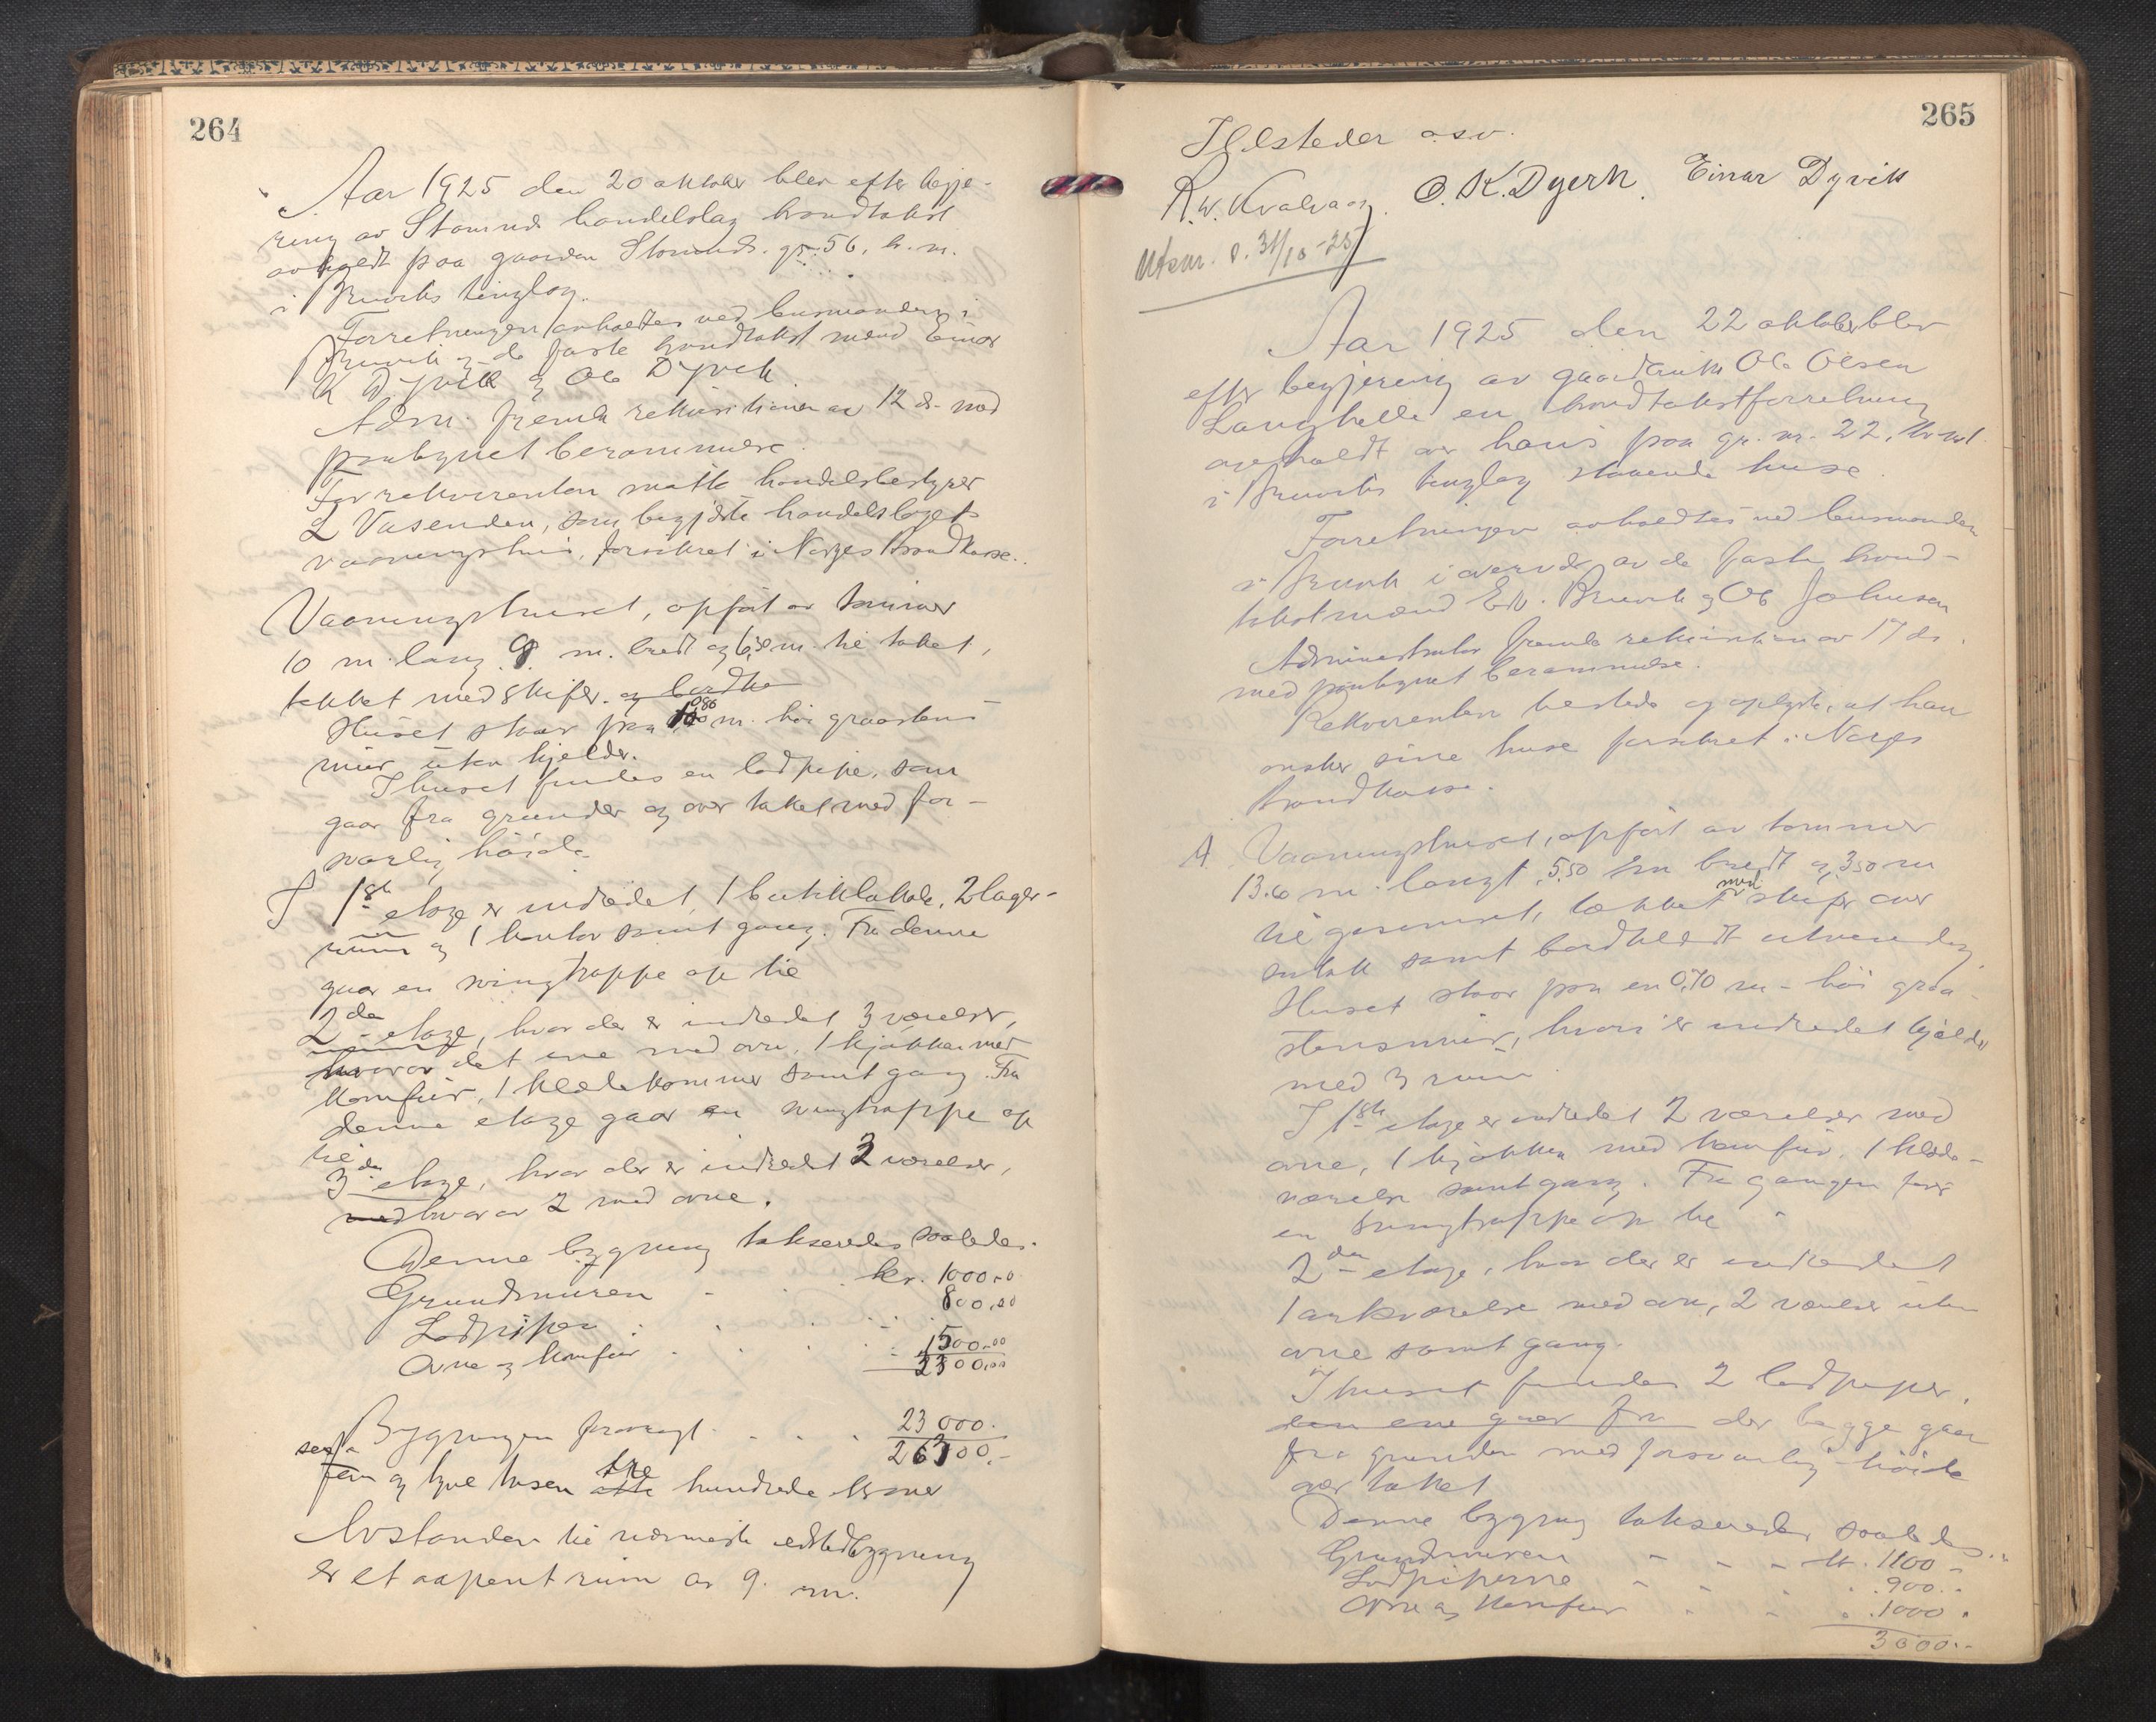 264
Aar 1925 den 20 oktober blev efter begje-
ring av Stamnes handelslag brandtakst
avholdt paa gaarden Stamnes. gr. 56, b. nr.
i Bruvik tinglag.
Forretningen avholdtes ved lensmanden i
Bruvik og de faste brandtakst mænd Einar
K Dyvik og Ole Dyvik
Adm. fremla rekvisitionen av 12 ds. med
paategnet berammelse.
For rekvirenten møtte handelsbestyrer
L Vasenden, som begjærte handelslagets
vaaningshus, forsikret i Norges Brandkasse.
Vaaningshuset, opført av tømmer
10 m. lang 9. m. bredt og 6,50 m. til taket,
tekket med skifer. og bordkl
Huset staar paa 0,80 m. høi graastens
mur uten kjelder.
I huset findes en lodpipe, som
gaar fra grunden og over taket med for-
svarlig høide.
I 1ste etage er indredet, 1 butiklokale, 2 lager-
rum og 1 kontor samt gang. Fra denne
gaar en svingtrappe op til
2den etage, hvor der er indredet 3 værelser,
hvorav det ene med ovn, 1 kjøkken med
komfur, 1 klædekammer samt gang. Fra
denne etage gaar en svingtrappe op
til
3die etage, hvor der er indredet 3 værelser,
med hvorav 2 med ovne.
Denne bygning takseredes saaledes.
Grundmuren kr. 1000.00
Lodpipen 800.00
Ovne og komfur 1500.00
3300.00
Bygningen forøvrigt 23 000.
26300.-
seks
fem og tyve tusen tre otte hundrede kroner
Avstanden til nærmeste ildstedbygning
er et aapent rum av 9. m.
265
Ildsteder osv.
R. W. Kvalvaag. O. K. Dyvik. Einar Dyvik
Utskr. d. 31/10-25
Aar 1925 den 22 oktober blev
efter begjering av gaardbruker Ole Olsen
Langhelle en brandtakstforretning
avholdt over hans paa gr. nr. 22, br. nr 1
i Bruvik tinglag staaende huse.
Forretningen avholdtes ved lensmanden
i Bruvik i overvær av de faste brand-
takstmænd Edv. Bruvik og Ole Johnsen
Administrator fremla rekvisition av 17 ds.
med paategnet berammelse.
Rekvirenten tilstede og oplyste, at han
ønsker sine huse forsikret i Norges
Brandkasse.
A. Vaaningshuset, opført av tømmer
13.60 m. langt, 5,50 m bredt og 3,50 m
til gesimset, tækket med skifer over
sutak samt bordklædt utvendig.
Huset staar paa en 0,70 m. høi graa-
stensmur, hvori er indredet kjælder
med 3 rum.
I 1ste etage er indredet 2 værelser med
ovne, 1 kjøkken med komfur, 1 klæde-
værelse samt gang. Fra gangen fører
en svingtrappe op til
2den etage, hvor der er indredet
1 arkværelse med ovn, 2 værelser uten
ovne samt gang.
I huset findes 2 lodpiper,
den ene gaar fra der begge gaar
fra grunden med forsvarlig høide
over taket
Denne bygning takseredes saaledes:
Grundmuren kr. 1100 -
Lodpiperne 900.-
Ovne og komfur 1000.
3000.-